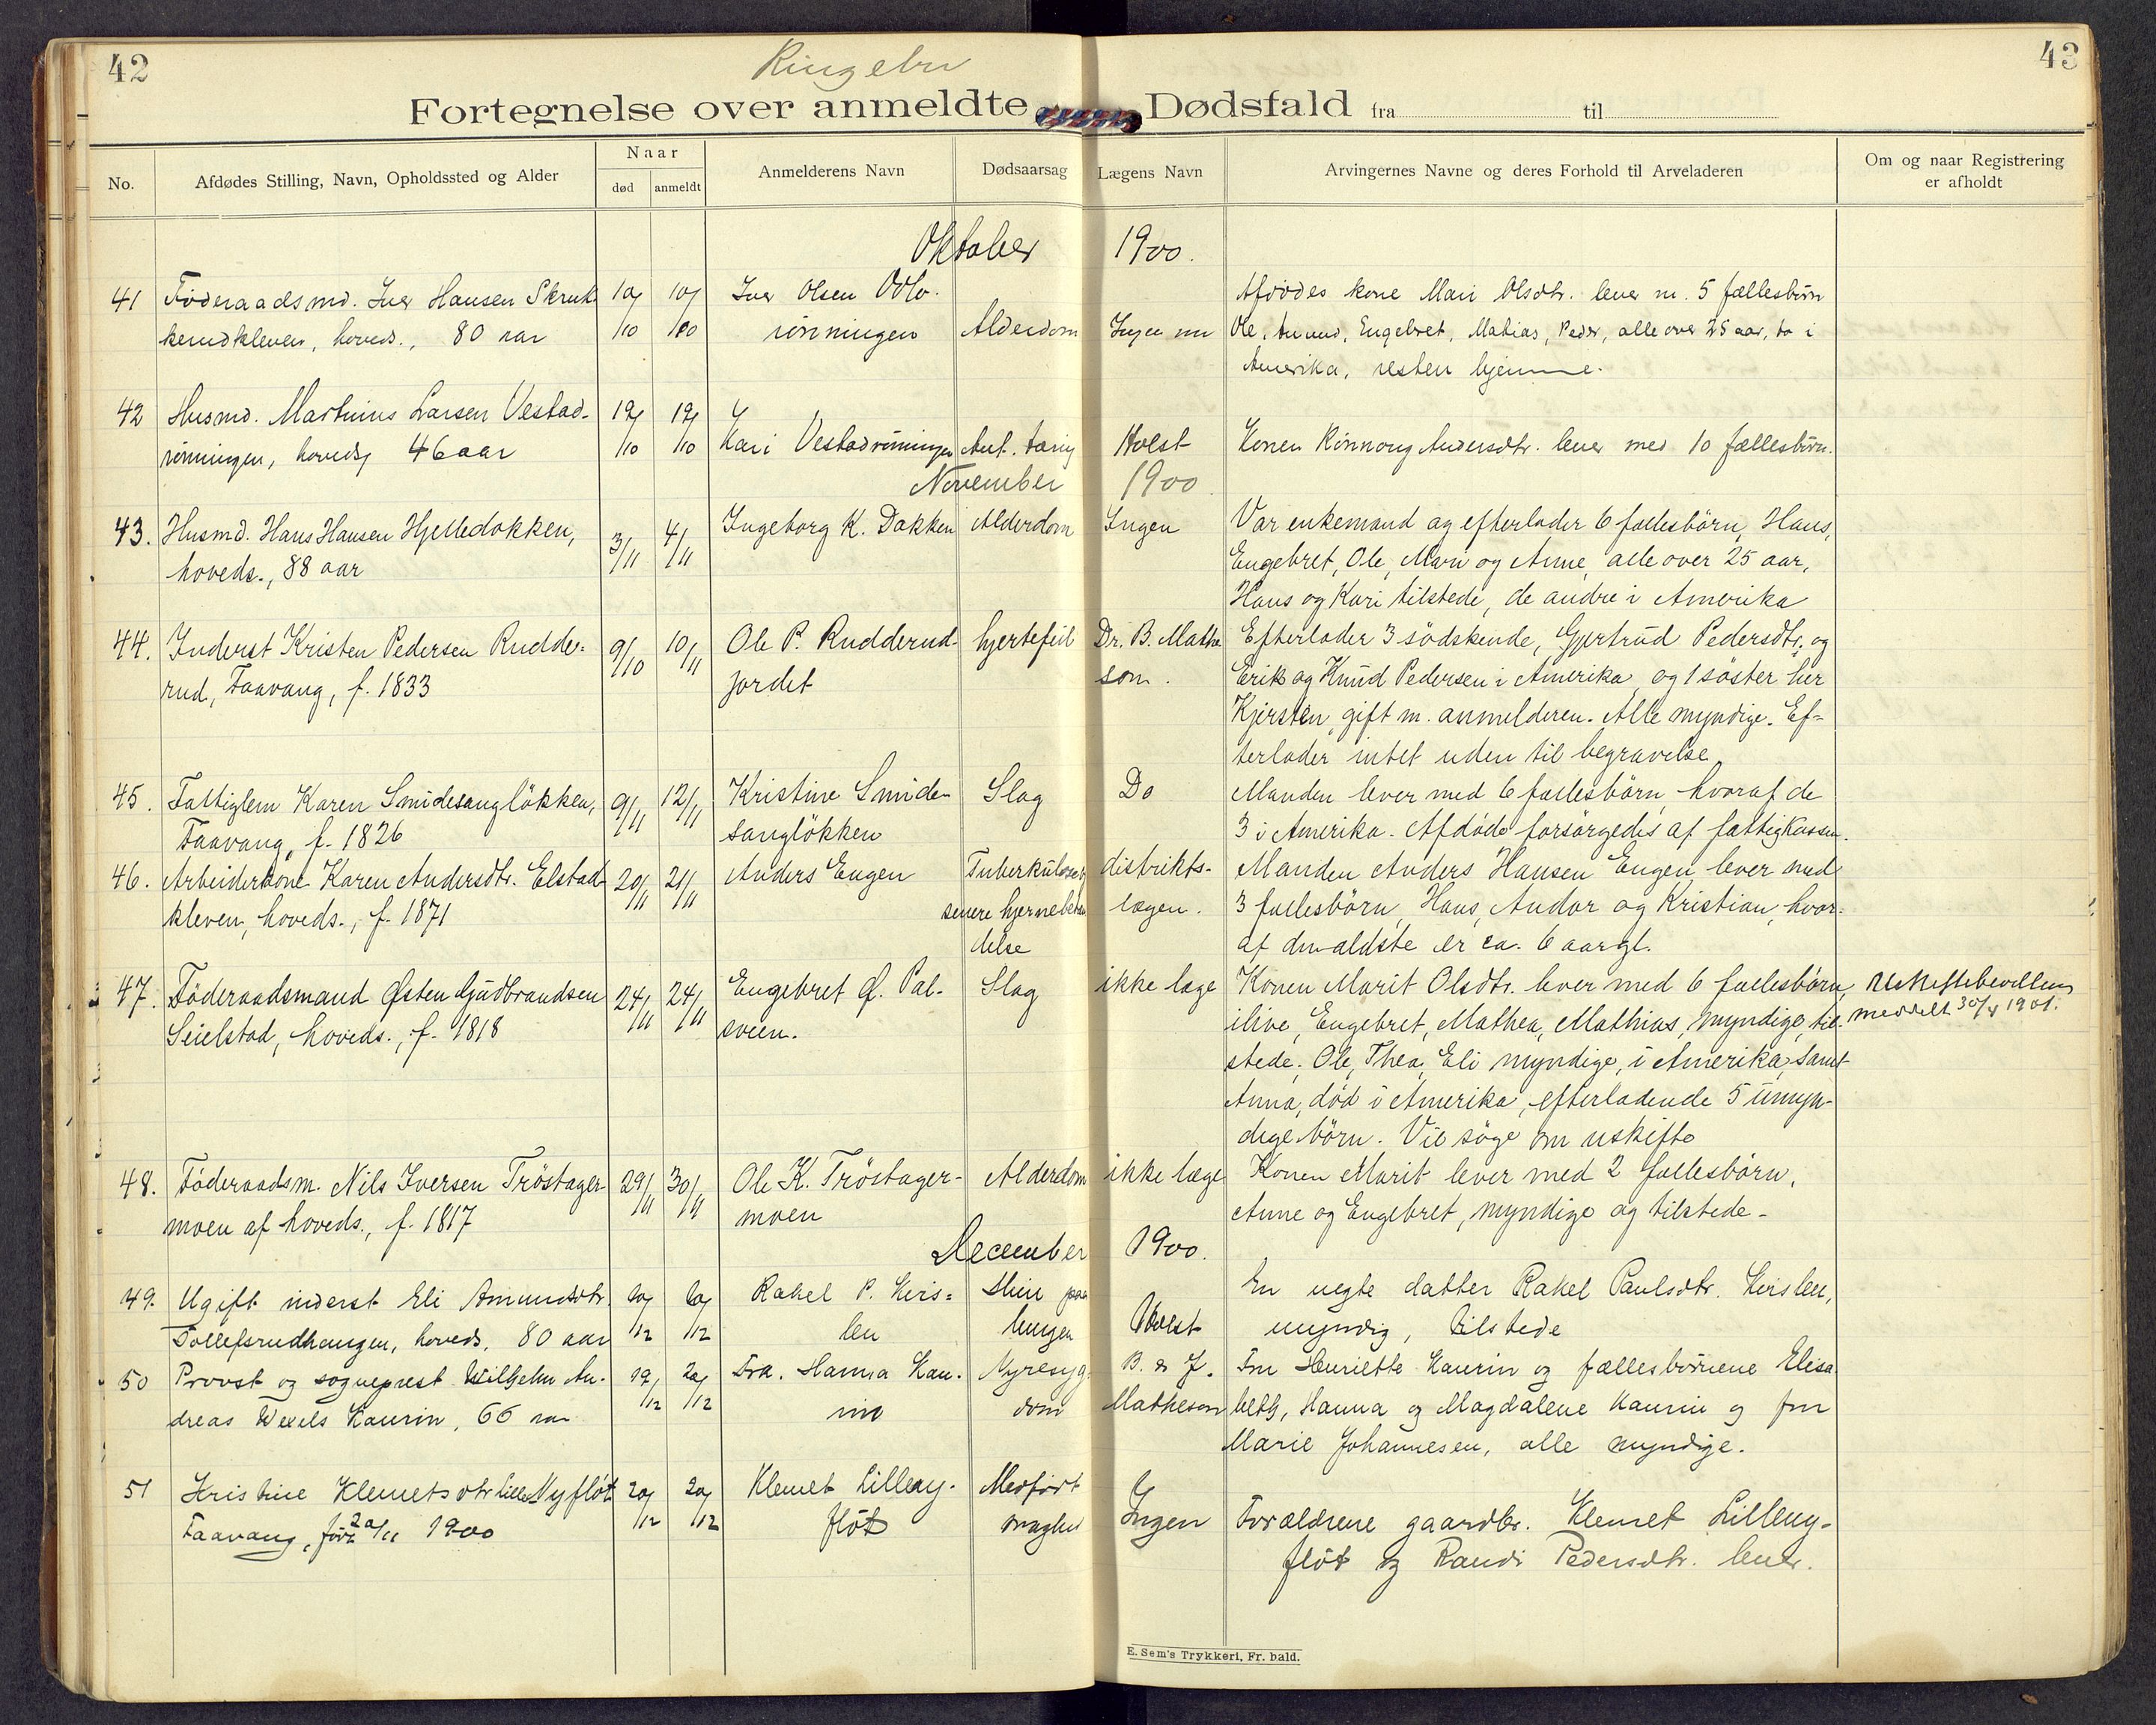 42
Ringebu
43
Fortegnelse over anmeldte Dødsfald fra til
No.
Afdødes Stilling, Navn, Opholdssted og Alder
Naar
død
anmeldt
Anmelderens Navn
Dødsaarsag
Lægens Navn
Arvingernes Navne og deres Forhold til Arveladeren
Om og naar Registrering
er afholdt
Oktober 1900.
41 Föderaadsmd. Iver Hansen Skruk- 10/ 10/ Iver Olsen Odlo. Afdödes kone Mari Olsdtr. lever m. 5 fællesbörn
kerudkleven, hoveds., 80 aar /10 /10 rönningen Alderdom Ingen Ole, Amund, Engebret, Mathias, Peder, alle over 25 aar, to i
Amerika, resten hjemme.
42 Husmd. Martinius Larsen Vestad- 12/ 12/
rönningen, hoveds, 46 aar /10 /10 Kari Vestadrönningen Holst Konen Rönnoug Andersdtr. lever med 10 fællesbörn.
November 1900
43. Husmd. Hans Hansen Hjelledokken, 3/11 4/11 Ingeborg K. Dokken Alderdom Ingen Var enkemand og efterlader 6 fællesbörn, Hans,
hoveds., 88 aar Engebret, Ole, Mari og Anne, alle over 25 aar,
Hans og Kari tilstede, de andre i Amerika
44. Inderst Kristen Pedersen Rudde- 9/10 10/11 Ole P. Rudderud- hjertefeil Dr. B. Mathe Efterlader 3 södskende, Gjertrud Pedersdtr. og
rud, Faavang, f. 1833 jordet son. Erik og Knud Pedersen i Amerika, og 1 söster her
Kjersten, gift m. anmelderen. Alle myndige. Ef-
terlader intet uden til begravelse
45. Fattiglem Karen Smidesanglökken, 9/11 12/11 Kristine Smide- Slag Do Manden lever med 6 fællesbörn, hvoraf de
Faavang, f. 1826 sanglökken 3 i Amerika. Afdöde forsörgedes af fattigkassen.
46. Arbeiderkone Karen Andersdtr. Elstad- 20/11 21/11 Anders Engen Tuberkulose distrikts- Manden Anders Hansen Engen lever med
kleven, hoveds., f. 1871 senere hjernebetæn lægen. 3 fællesbörn, Hans, Andor og Kristian, hvor-
delse af den ældste er ca. 6 aar gl.
47. Föderaadsmand Østen Gudbrandsen 24/11 24/11 Engebret Ø. Pal- Slag ikke læge Konen Marit Olsdtr. lever med 6 fællesbörn, Uskiftebevilling
Seielstad, hoveds., f. 1818 sveen. ilive, Engebret, Mathea, Mathias, myndige, til- meddelt 30/4 1901.
stede; Ole, Thea, Eli myndige, i Amerika, samt
Anna, död i Amerika, efterladende 5 umyn-
dige börn. Vil söge om uskifte
48. Föderaadsm. Nils Iversen Tröstager- 29/11 30/11 Ole K. Tröstager- Alderdom ikke læge Konen Marit lever med 2 fællesbörn,
moen af hoveds., f. 1817 moen Anne og Engebret, myndige og tilstede.
December 1900.
49. Ugift inderst Eli Amundsdtr. Rakel P. Kirs- Sliim paa En uegte datter Rakel Paulsdtr. Kirslen,
Tollefsrudhaugen, hoveds, 80 aar /12 /12 len lungen Holst myndig, tilstede
50 Provst og sogneprest Wilhelm An- 19/ 20/ Frk. Hanna Kau- Nyresyg B. & J. Fru Henriette Kaurin og fællesbörnene Elisa
dreas Wexels Kaurin, 66 aar /12 /12 rin dom Matheson beth, Hanna og Magdalene Kaurin og fru
Marie Johannesen, alle myndige.
51 Kristine Klemetsdtr Lille Nyflöt 20/ 20/ Klemet Lilleny- Medfört
Faavang, född 20/11 1900 /12 /12 flöt Ingen Forældrene gaardbr. Klemet Lilleny-
flöt og Randi Pedersdtr. lever.
E. Sem's Trykkeri, Fr.hald.